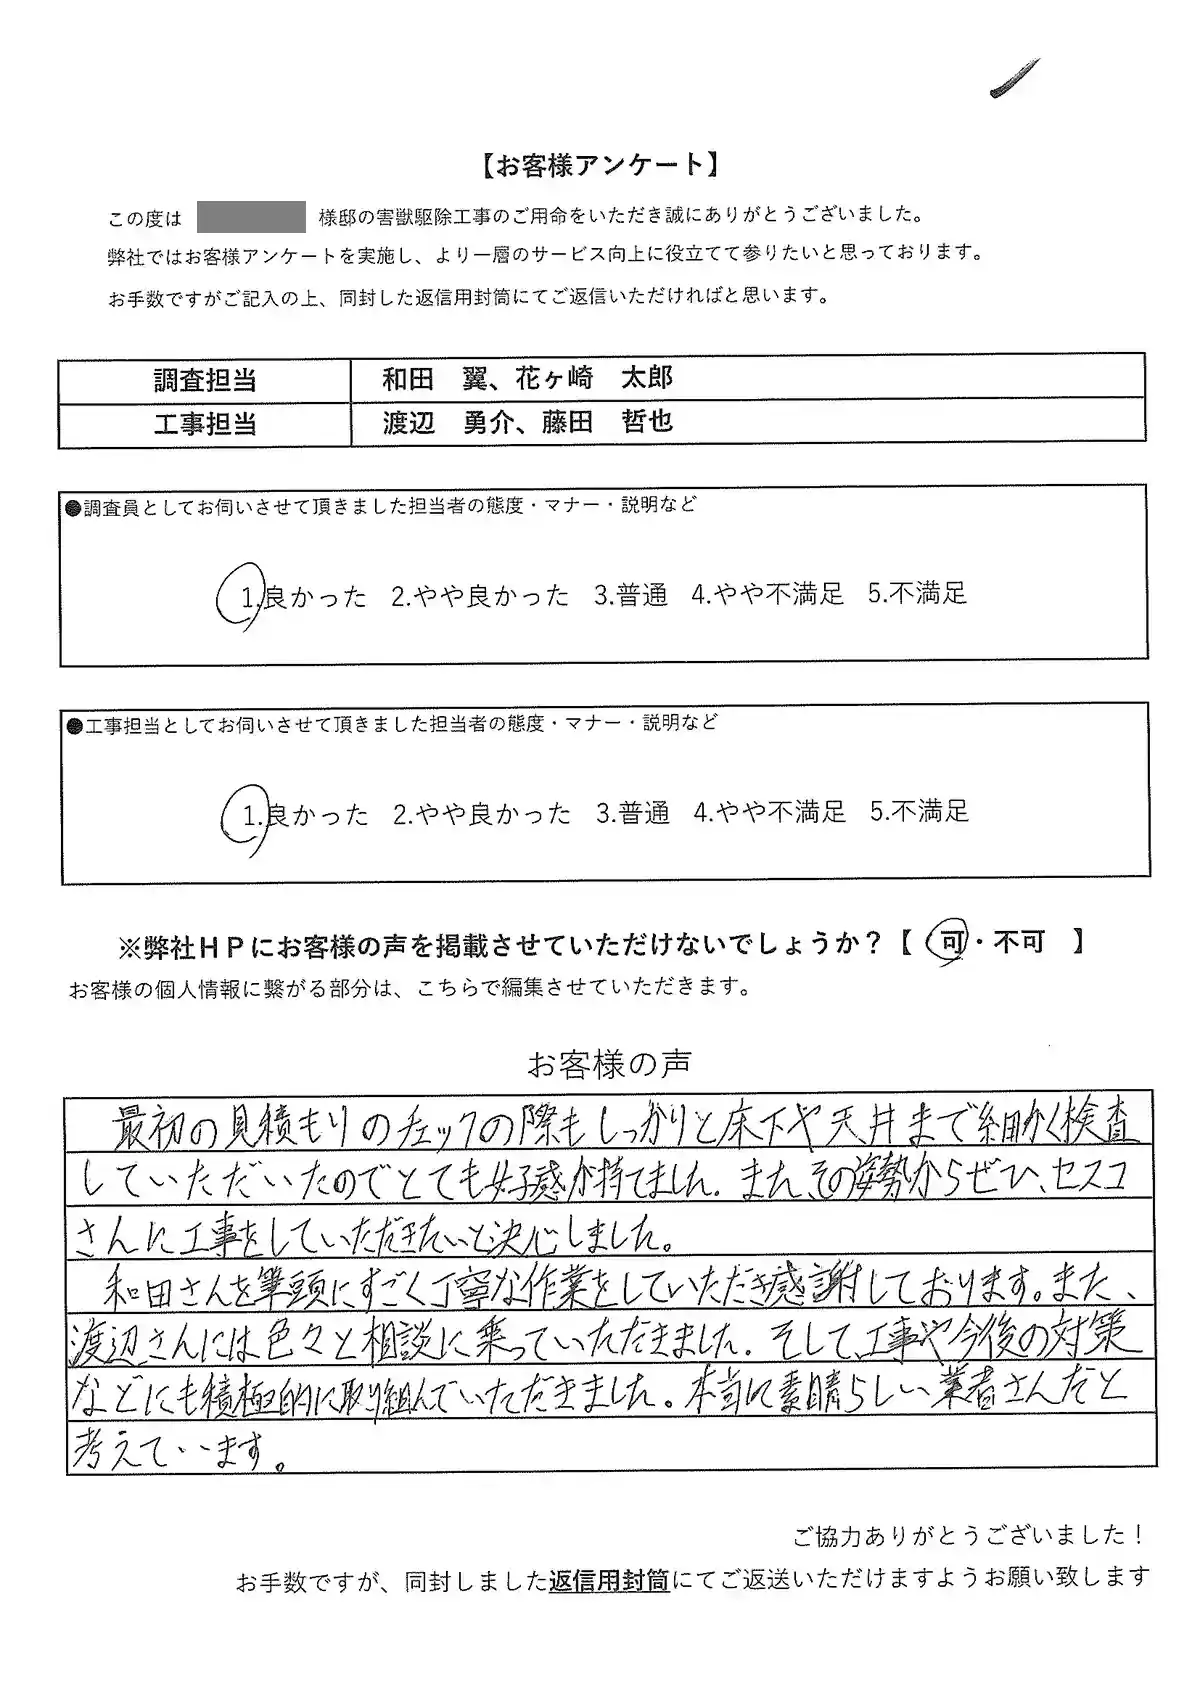 【お客様アンケート】
この度は 様邸の害獣駆除工事のご用命をいただき誠にありがとうございました。
弊社ではお客様アンケートを実施し、より一層のサービス向上に役立てて参りたいと思っております。
お手数ですがご記入の上、同封した返信用封筒にてご返信いただければと思います。
調査担当 和田 翼、花ヶ崎 太郎
工事担当 渡辺 勇介、藤田 哲也
●調査員としてお伺いさせて頂きました担当者の態度・マナー・説明など
1.良かった 2.やや良かった 3.普通 4.やや不満足 5.不満足
●工事担当としてお伺いさせて頂きました担当者の態度・マナー・説明など
1.良かった 2.やや良かった 3.普通 4.やや不満足 5.不満足
※弊社HPにお客様の声を掲載させていただけないでしょうか?【 可・不可 】
お客様の個人情報に繋がる部分は、こちらで編集させていただきます。
お客様の声
最初の見積もりのチェックの際もしっかりと床下や天井まで細かく検査
していただいたのでとても好感が持てました。また、その姿勢からぜひ、セスコ
さんに工事をしていただきたいと決心しました。
和田さんを筆頭にすごく丁寧な作業をしていただき感謝しております。また、
渡辺さんには色々と相談に乗っていただきました。そして、工事や今後の対策
などにも積極的に取り組んでいただきました。本当に素晴らしい業者さんだと
考えています。
ご協力ありがとうございました！
お手数ですが、同封しました返信用封筒にてご返送いただけますようお願い致します